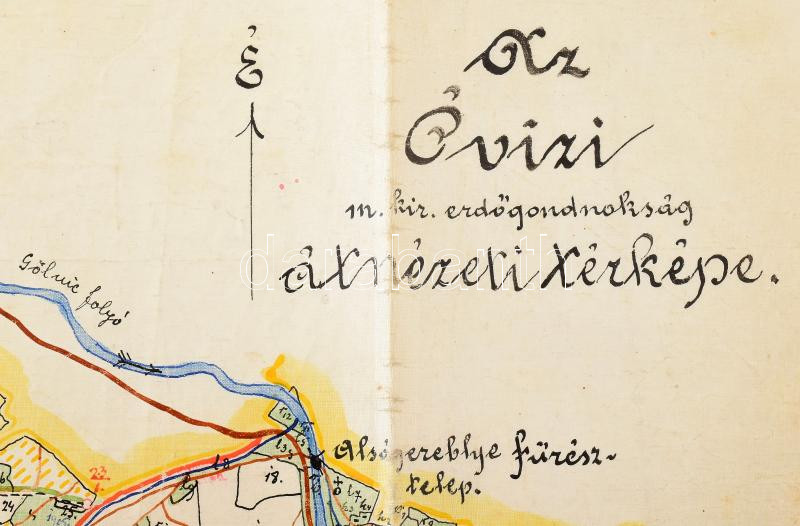 É
Az
Óvizi
m. kir. erdőgondnokság
átnézeti térképe.
Gölnic folyó
Alsógereblye fűrész-
telep.
18.
23.
24